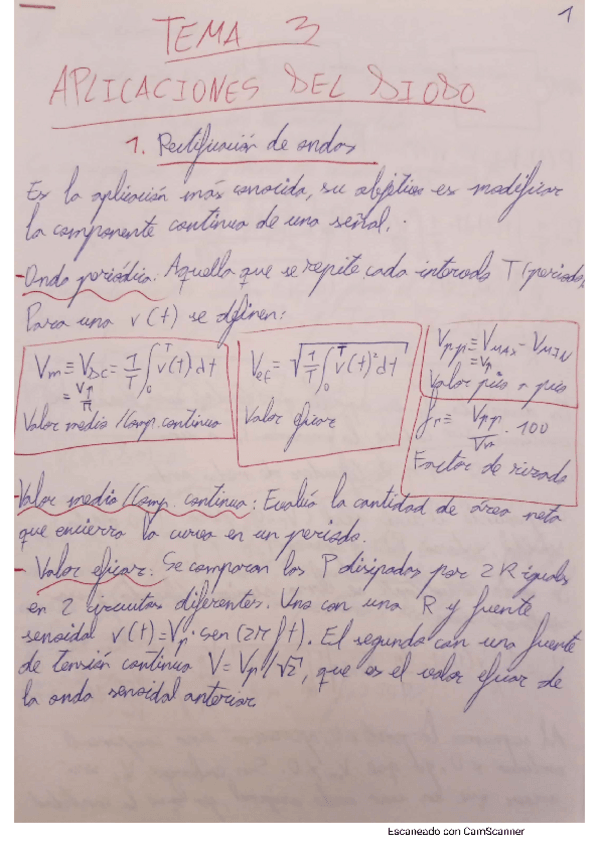 1
TEMA 3
APLICACIONES DEL DIODO
1. Rectificación de ondas
Es la aplicación más conocida, su objetivo es modificar
la componente continua de una señal.
- Onda periódica: Aquella que se repite cada intervalo T (periodo).
Para una v(t) se definen:
Vm ≡ VDC = 1/T ∫₀ᵀ v(t) dt
= Vp/π
Valor medio / Comp. continua
Vef = √(1/T ∫₀ᵀ v(t)² dt)
Valor eficaz
Vpp ≡ VMAX - VMIN
= Vp
Valor pico a pico
fr ≡ Vpp/Vm · 100
Factor de rizado
- Valor medio / Comp. continua: Evalúa la cantidad de área neta
que encierra la curva en un periodo.
- Valor eficaz: Se comparan las P disipadas por 2 R iguales
en 2 circuitos diferentes. Uno con una R y fuente
senoidal v(t) = Vp · sen (2π f t). El segundo con una fuente
de tensión continua V = Vp/√2, que es el valor eficaz de
la onda senoidal anterior
Escaneado con CamScanner